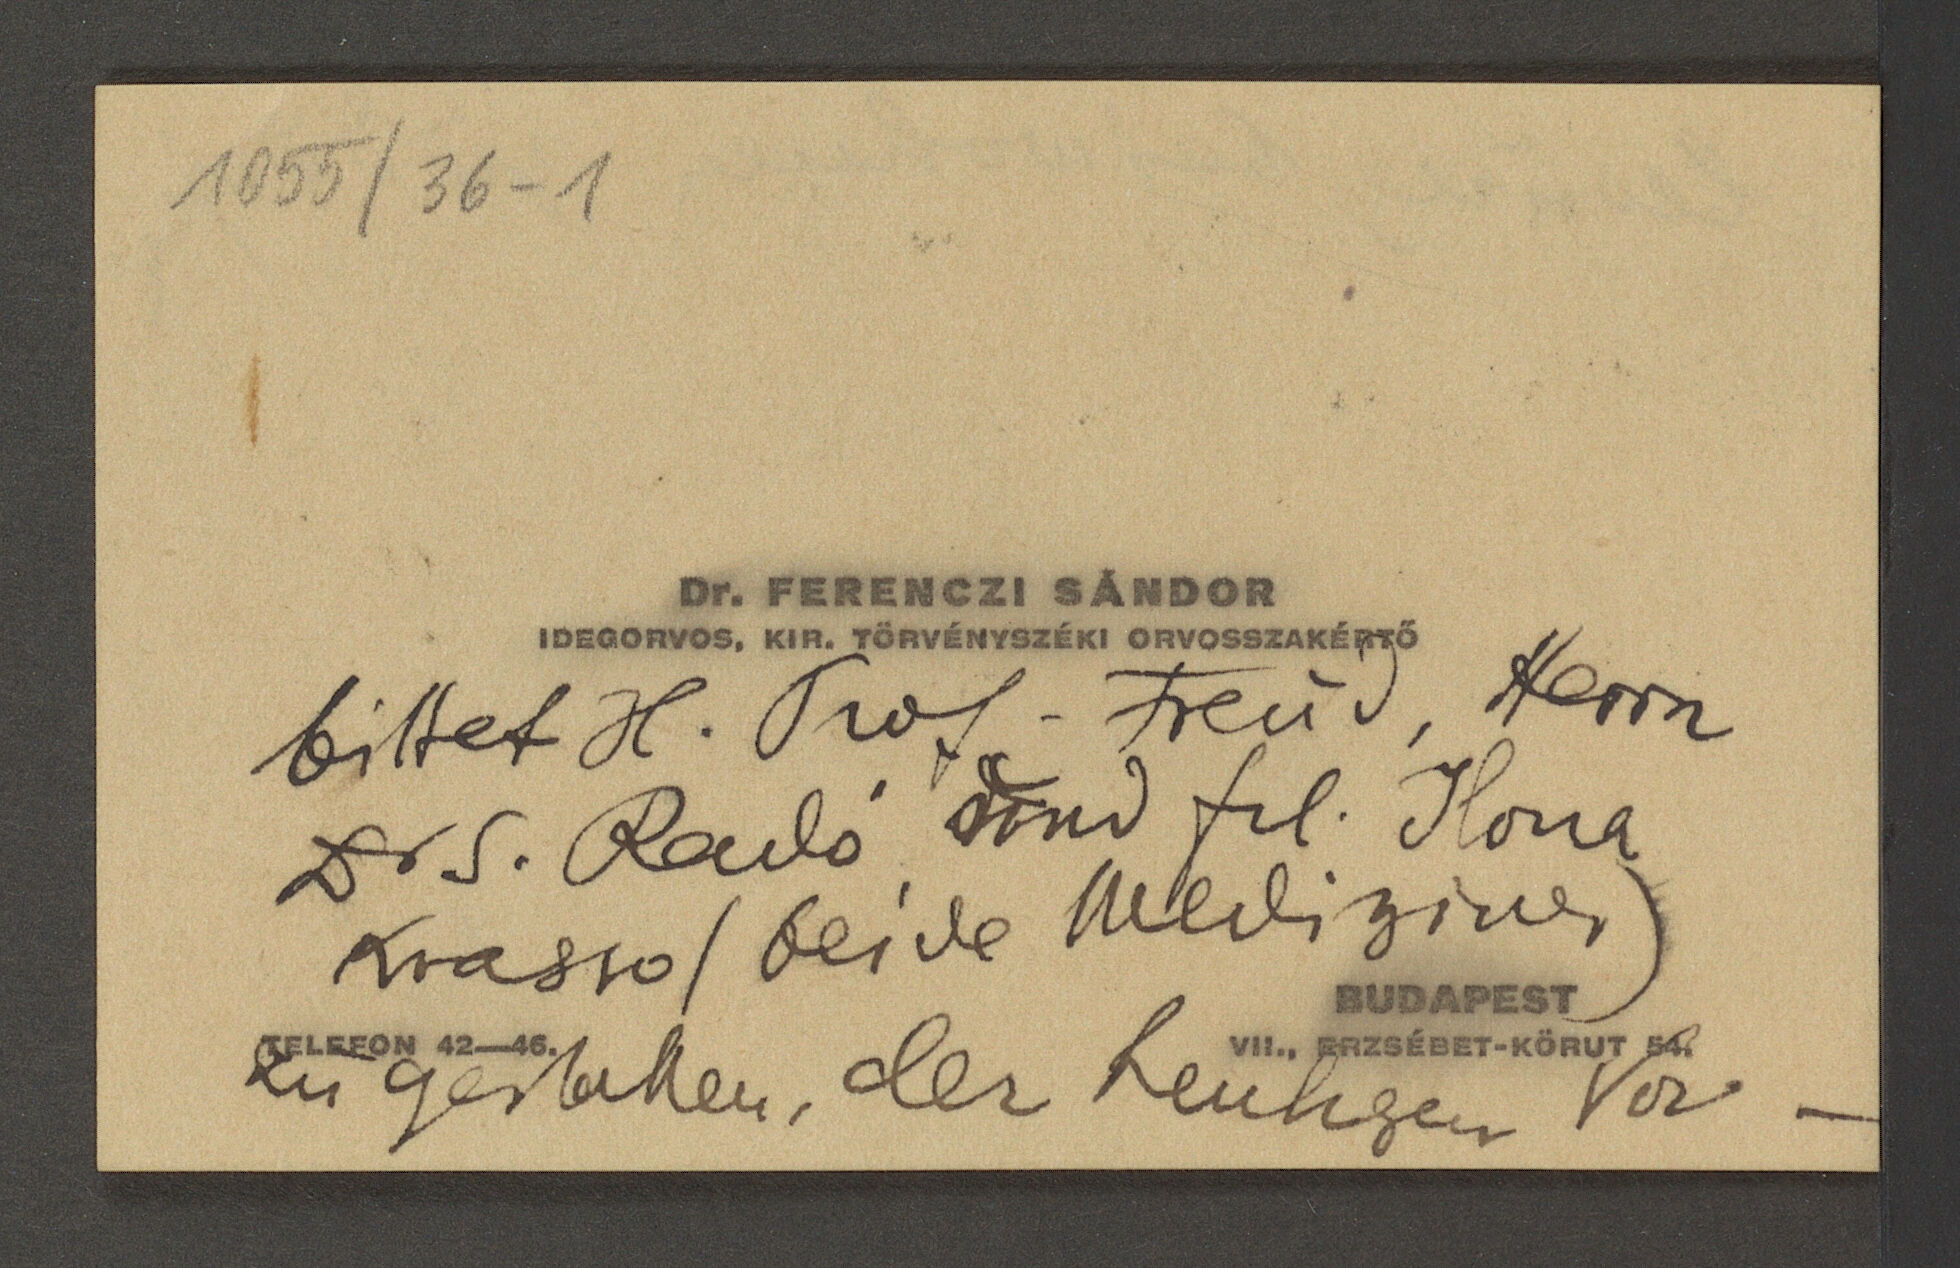 1055/36-1
Dr. FERENCZI SÁNDOR
IDEGORVOS, KIR. TÖRVÉNYSZÉKI ORVOSSZAKÉRTŐ
bittet H. Prof. Freud, Herrn
Dr S. Radó und frl. Ilona
Krasso (beide Mediziner)
BUDAPEST
TELEFON 42—46.
VII., ERZSÉBET-KÖRUT 54.
zu gestatten, der heutigen Vor-